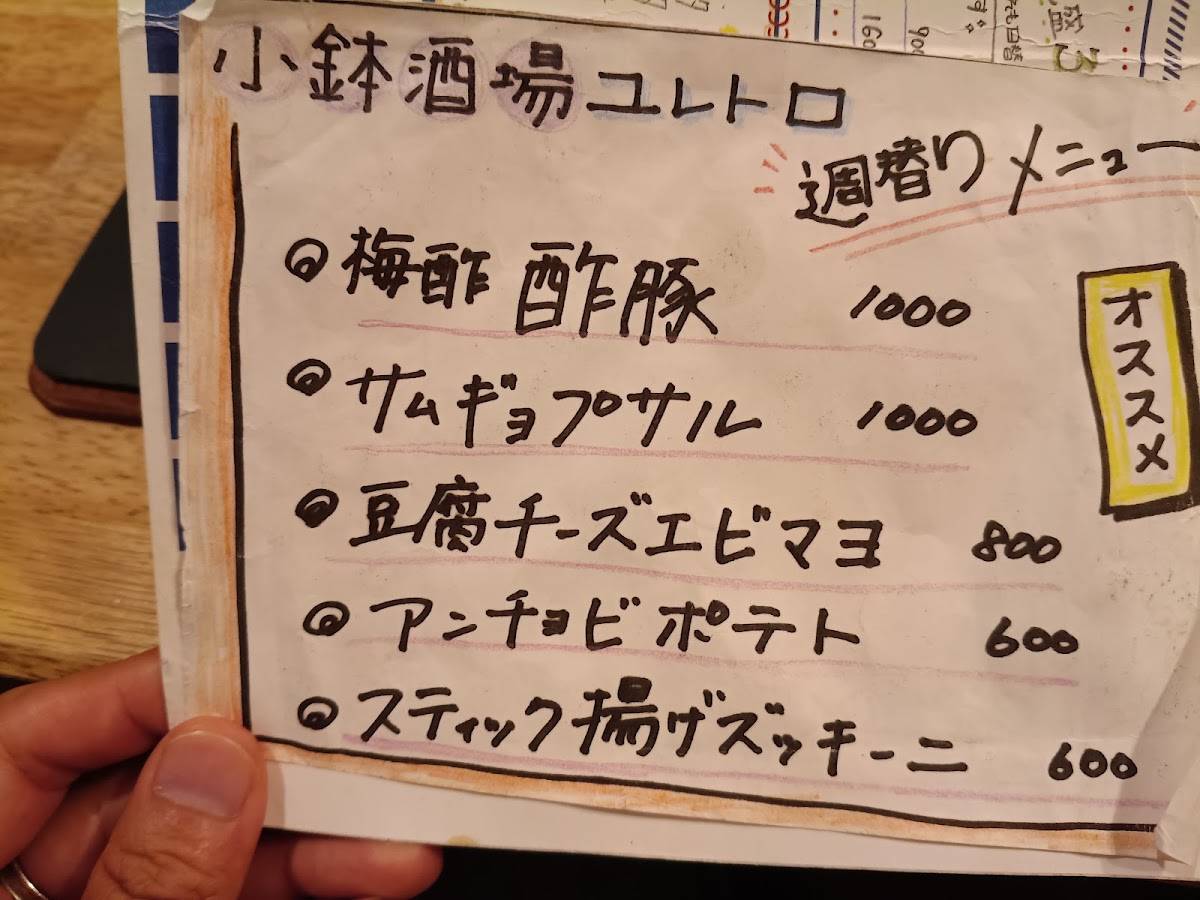 小鉢酒場コレトロ
週替りメニュー
オススメ
梅酢 酢豚 1000
サムギョプサル 1000
豆腐チーズエビマヨ 800
アンチョビポテト 600
スティック揚げズッキーニ 600